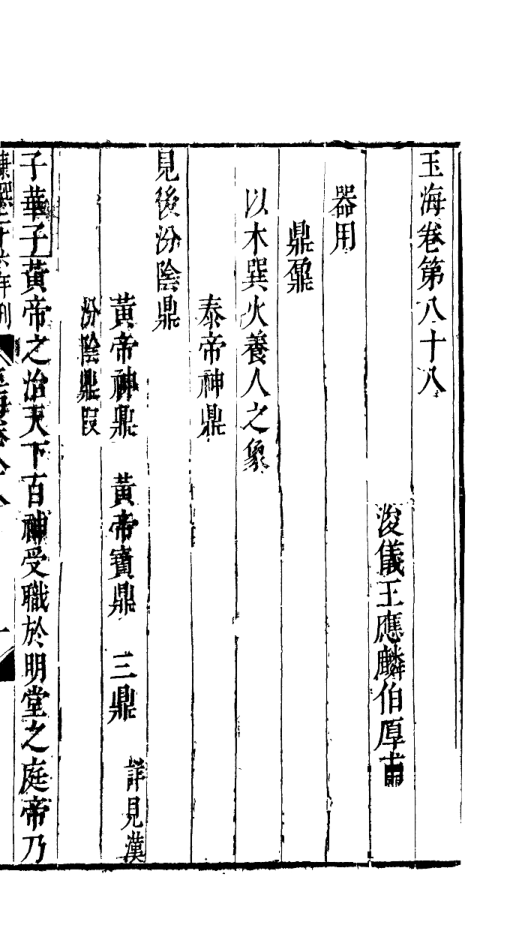 玉海卷第八十八
浚儀王應麟伯厚甫
器用
鼎鼐
以木巽火養人之象
泰帝神鼎
見後汾陰鼎
黃帝神鼎 黃帝寶鼎 三鼎 詳見漢
汾陰鼎叚
子華子黃帝之治天下百神受職於明堂之庭帝乃